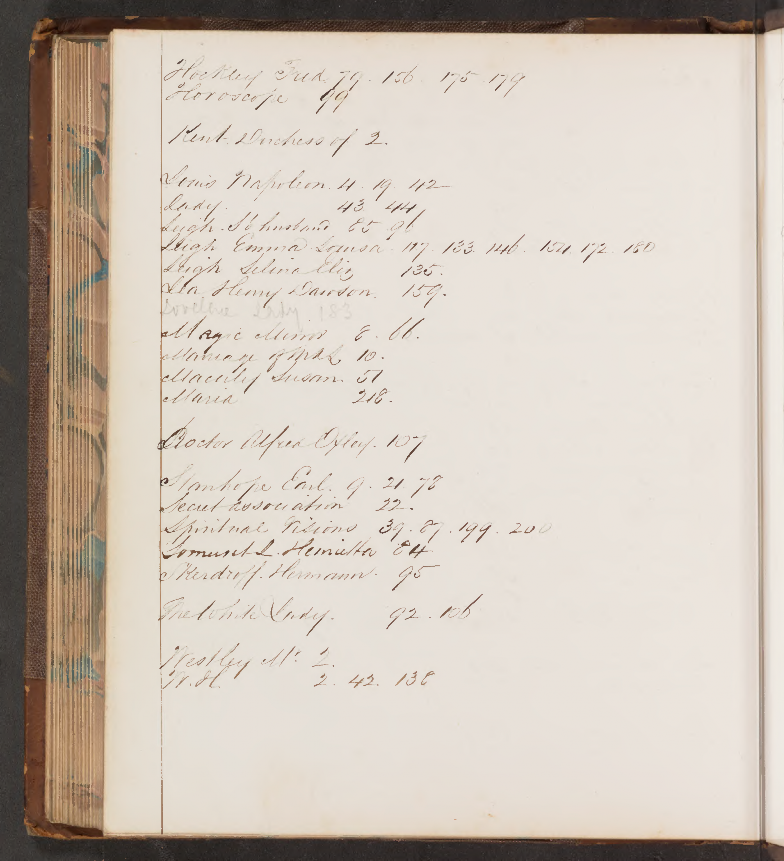 Hockley Fred 79. 156 175 179
Horoscope 99
Kent. Duchess of 2.
Louis Napoleon. 4. 19. 42
Lady. 43. 44
Leigh. S's husband 85 96
Leigh Emma Louisa. 117. 133. 146. 154. 172. 180
Leigh Selina Eliz 135.
Lea Henry Dawson. 159.
Lovelace Lady. 183
Magic Mirror 8. 66.
Marriage of 10.
Susan. 51
Maria 218.
Doctor Alfred Oxley. 107
Stanhope Earl. 9. 21 78
Secret association 22.
Spiritual Visions 39. 89. 199. 200
Somerset L. Henrietta 84
Hermann. 95
The White Lady. 92. 106
Westley Mr. 2.
W.H. 2. 42. 138